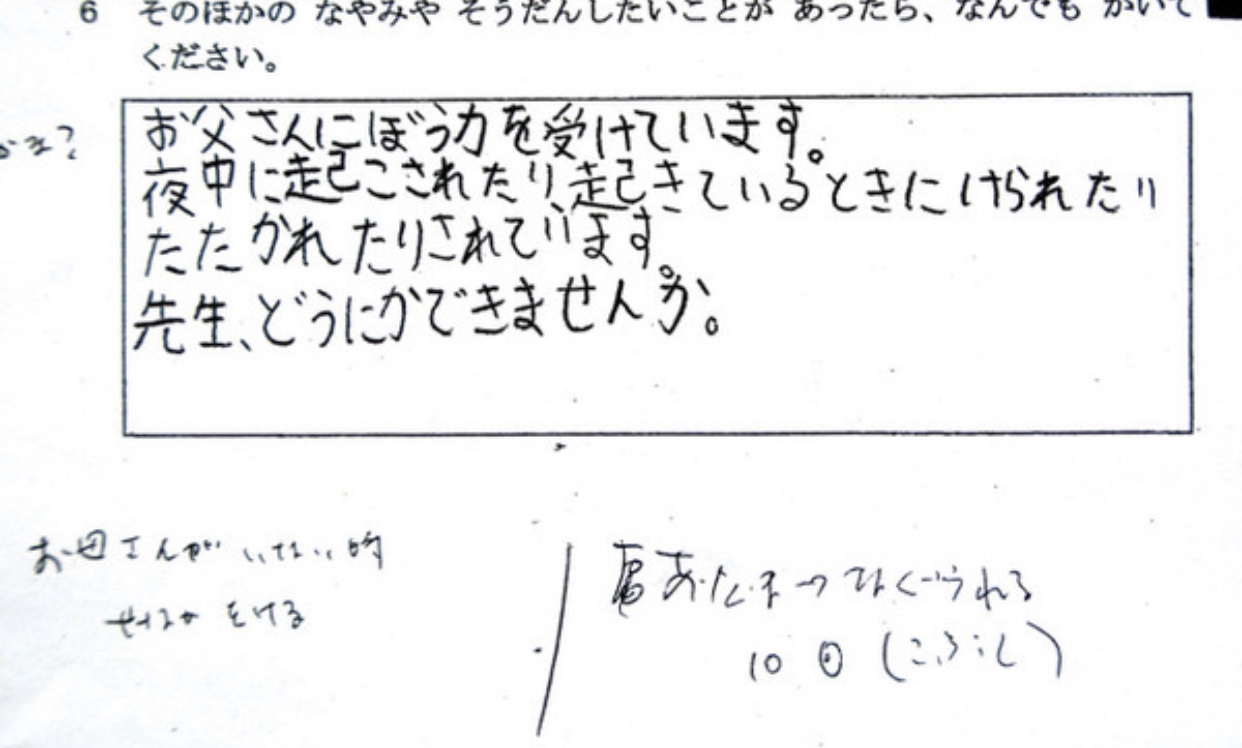 6 そのほかの なやみや そうだんしたいことが あったら、なんでも かいて
ください。
お父さんにぼう力を受けています。
夜中に起こされたり、起きているときにけられたり
たたかれたりされています。
先生、どうにかできませんか。
お母さんがいない時
せなかをける
あたま→なぐられる
10回(こぶし)